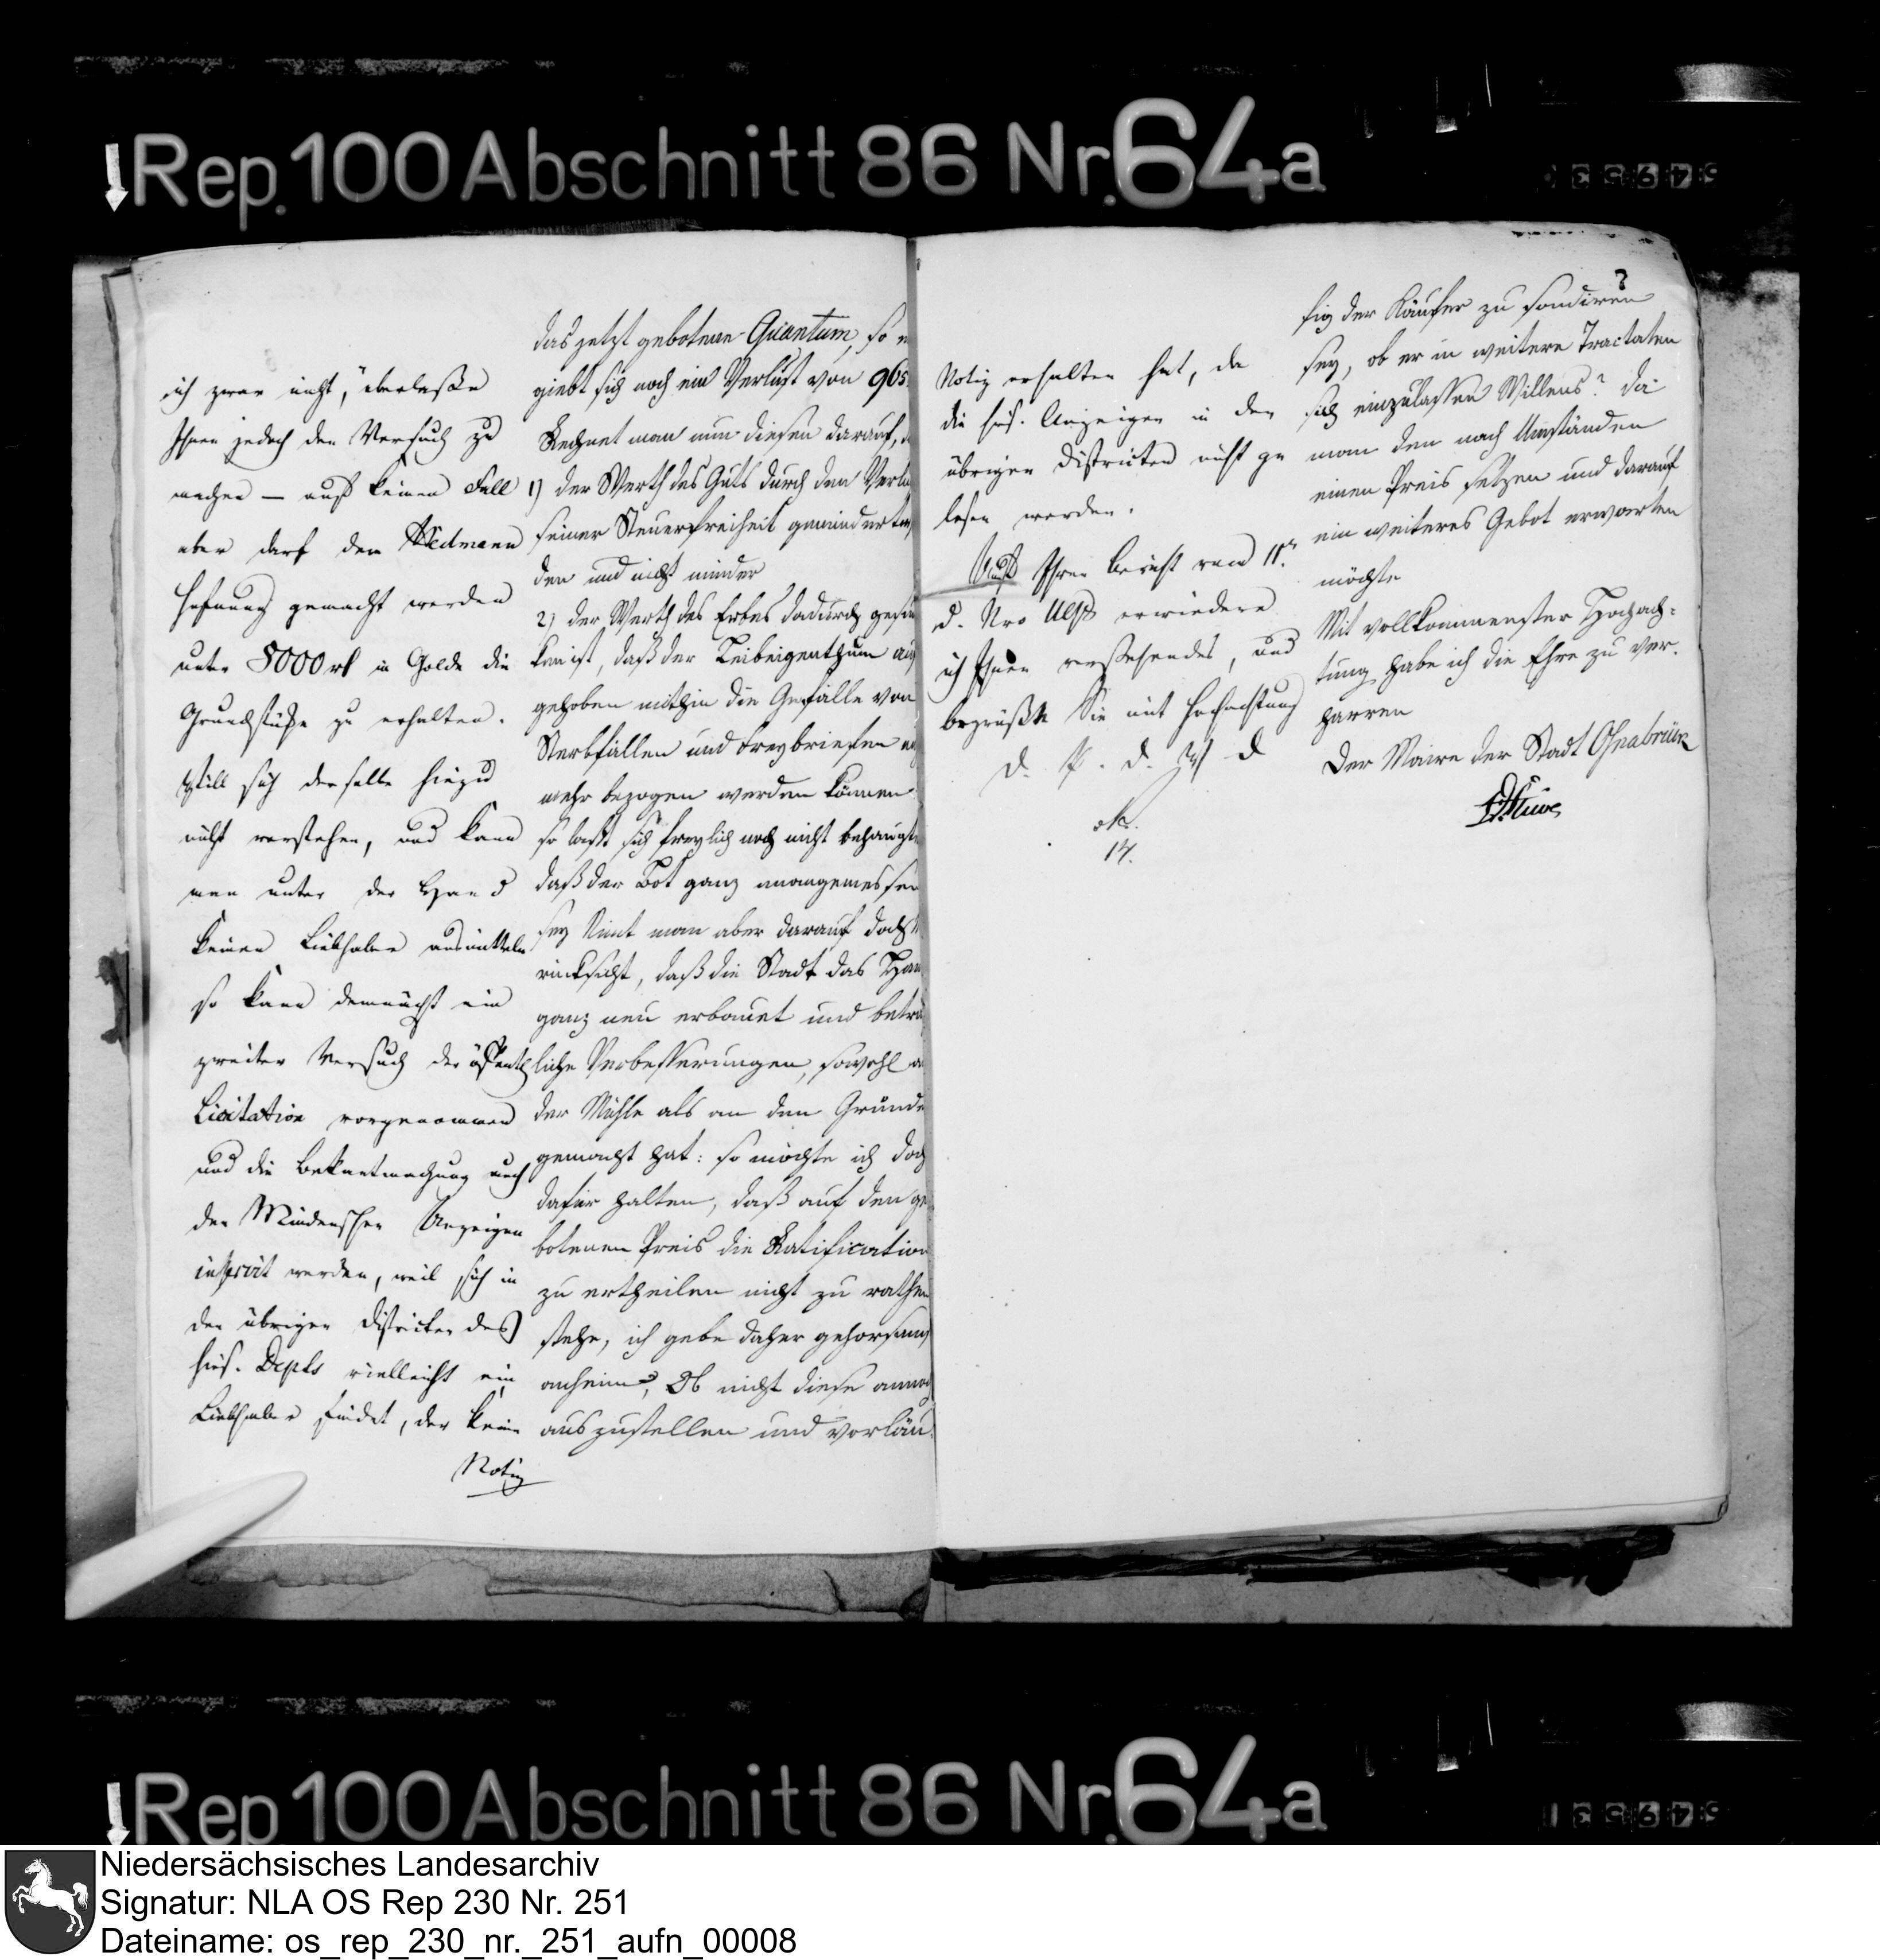 Rep. 100 Abschnitt 86 Nr. 64a
ich zwar nicht, überlaße
Ihnen jedoch den Versuch zu
machen — auf keinen Fall
aber darf dem
Hofnung gemacht werden
unter 8000 rt in Golde die
Grundstücke zu erhalten.
Will sich derselbe hiezu
nicht verstehen, und kann
man unter der Hand
keinen Liebhaber ausmitteln
so kann demnächst ein
zweiter Versuch der öffentl
Licitation vorgenommen
und die Bekantmachung auch
den Mindenschen Anzeigen
inserirt werden, weil sich in
den übrigen Districten des
hies. Depts vielleicht ein
Liebhaber findet, der keine
Notiz
das jetzt gebotene Quantum, so e
giebt sich noch ein Verlust von 965
Rechnet man nun diesen darauf,
1) der Werth des Guts durch den Verlu
seiner Steuerfreiheit gemindert
den und nicht minder
2) der Werth des Erbes dadurch gesun
ken ist, daß der Leibeigenthum auf
gehoben mithin die Gefälle von
Sterbfällen und Freybriefen
mehr bezogen werden können
so laßt sich freylich noch nicht behaupte
daß der Bot ganz unangemessen
sey Nimt man aber darauf doch
rücksicht, daß die Stadt das Hau
ganz neu erbauet und beträ
liche Verbesserungen, sowohl a
der Mühle als an den Gründe
gemacht hat: so möchte ich doch
dafür halten, daß auf den ge
botenen Preis die Ratification
zu ertheilen nicht zu rathen
stehe, ich gebe daher gehorsamst
anheim, Ob nicht diese annoch
auszustellen und vorläu
Notiz erhalten hat, da
die hies. Anzeigen in den
übrigen Districten nicht ge
lesen werden.
Auf Ihren Bericht vom 11n
d. Nro erwiedere
ich Ihnen vorstehendes, und
begrüße Sie mit Hochachtung
D. P. d. W D
14.
fig der Käufer zu sondiren
sey, ob er in weitere Tractaten
sich einzulassen Willens? da
man den nach Umständen
einen Preis setzen und darauf
ein weiteres Gebot erwarten
möchte
Mit vollkommenster Hochach=
tung habe ich die Ehre zu ver.
harren
Der Maire der Stadt Osnabrück
Stüve
Rep. 100 Abschnitt 86 Nr. 64a
Niedersächsisches Landesarchiv
Signatur: NLA OS Rep 230 Nr. 251
Dateiname: os_rep_230_nr._251_aufn_00008